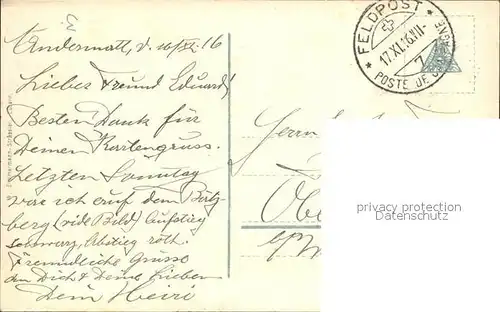 Andermatt, d. 16/XI. 16
Lieber Freund Eduard!
Besten Dank für
Deinen Kartengruss.
Letzten Sonntag
war ich auf dem Bätz-
berg (vide Bild) Aufstieg
schwarz, Abstieg rot.
Freundliche Grüsse
an Dich & Deine Lieben
Dein Heiri
FELDPOST
17.XI.16.VII-
7
POSTE DE CAMPAGNE
Herrn
Obe
privacy protection
(Watermark)